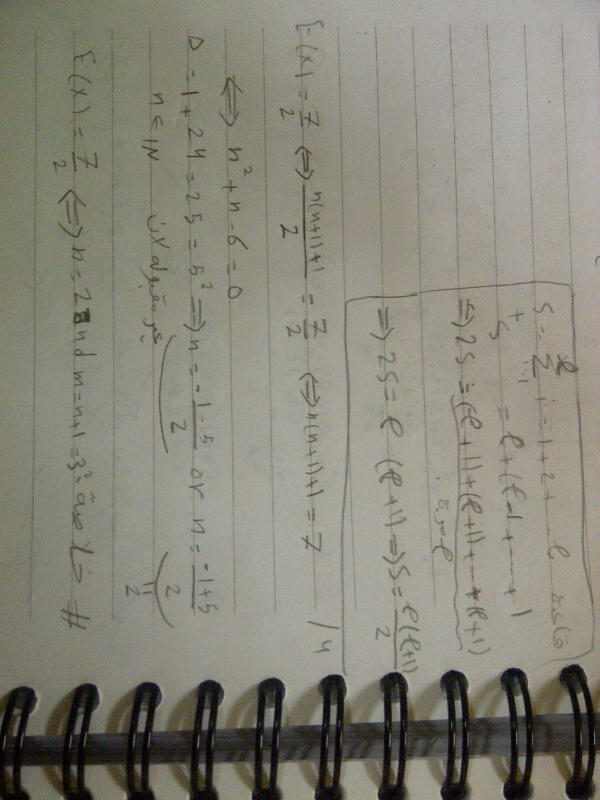 S = Σ i = 1 + 2 + ... + l
+ S = l + (l-1) + ... + 1
⇒ 2S = (l+1) + (l+1) + ... + (l+1)
⇒ 2S = l (l+1) ⇒ S = l(l+1)/2
/4
E(X) = 7/2 ⇔ (n(n+1)+1)/2 = 7/2 ⇔ n(n+1)+1 = 7
⇔ n² + n - 6 = 0
Δ = 1 + 24 = 25 = 5² ⇒ n = (-1-5)/2 or n = (-1+5)/2
n ∈ IN 2
E(X) = 7/2 ⇔ n = 2 and m = n+1 = 3 #